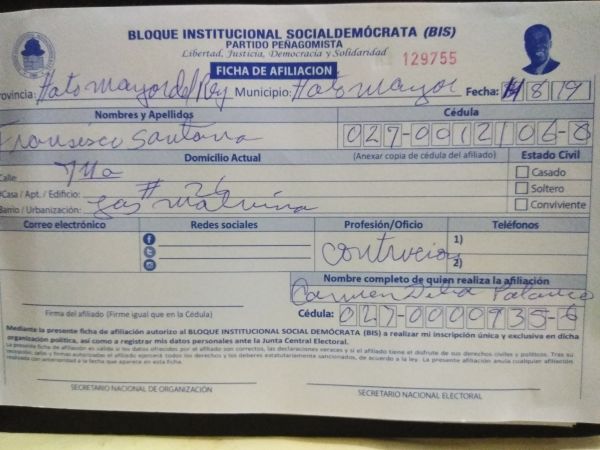 BLOQUE INSTITUCIONAL SOCIALDEMÓCRATA (BIS)
PARTIDO PEÑAGOMISTA
Libertad, Justicia, Democracia y Solidaridad
129755
FICHA DE AFILIACION
Provincia: Hato mayor del Rey Municipio: Hato mayor Fecha: 8/19
Nombres y Apellidos Cédula
Francisco Santana 027-0012106-8
Domicilio Actual (Anexar copia de cédula del afiliado) Estado Civil
Calle: 7ma Casado
#Casa / Apt. / Edificio: # 26 Soltero
Barrio / Urbanización: Las malvina Conviviente
Correo electrónico Redes sociales Profesión/Oficio Teléfonos
Contrucion 1)
2)
Nombre completo de quien realiza la afiliación
Carmen Delia
Firma del afiliado (Firme igual que en la Cédula) Cédula: 027-0000935-6
Mediante la presente ficha de afiliación autorizo al BLOQUE INSTITUCIONAL SOCIAL DEMÓCRATA (BIS) a realizar mi inscripción única y exclusiva en dicha
organización política, así como a registrar mis datos personales ante la Junta Central Electoral.
La presente ficha de afiliación es válida si los datos ofrecidos por el afiliado son correctos, las declaraciones veraces y si el afiliado tiene el disfrute de sus derechos civiles y políticos. Tras su
recepción, sello y firmas autorizadas el afiliado ejercerá todos los derechos y los deberes estatutariamente sancionados, de acuerdo a la ley. La presente afiliación anula cualquier afiliación
realizada con anterioridad a la fecha que aparece en esta ficha.
SECRETARIO NACIONAL DE ORGANIZACIÓN SECRETARIO NACIONAL ELECTORAL